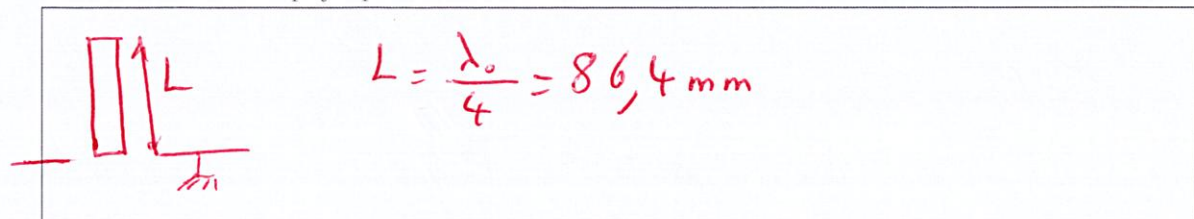 L
L = λ₀/4 = 86,4 mm